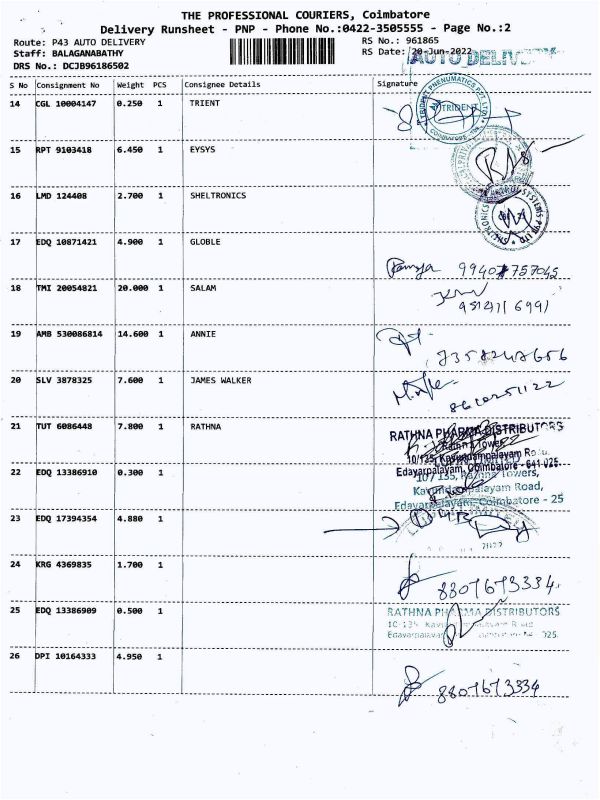 THE PROFESSIONAL COURIERS, Coimbatore
Delivery Runsheet - PNP - Phone No.:0422-3505555 - Page No.:2
Route: P43 AUTO DELIVERY
RS No.: 961865
Staff: BALAGANABATHY
RS Date: 20-Jun-2022
AUTO DELIV
DRS No.: DCJB96186502
S No Consignment No Weight PCS Consignee Details Signature
14 CGL 10004147 0.250 1 TRIENT
TRIDENT PNEUMATICS PVT LTD
TRIDENT
COIMBATORE
15 RPT 9103418 6.450 1 EYSYS
16 LMD 124408 2.700 1 SHELTRONICS
17 EDQ 10871421 4.900 1 GLOBLE
Ramya
18 TMI 20054821 20.000 1 SALAM
19 AMB 530086814 14.600 1 ANNIE
20 SLV 3878325 7.600 1 JAMES WALKER
8610251122
21 TUT 6086448 7.800 1 RATHNA
RATHNA PHARMA DISTRIBUTORS
Rathna Tower
10/135, Kavundampalayam Road,
Edayarpalayam, Coimbatore - 641 025.
22 EDQ 13386910 0.300 1
10 / 135, Rathna Towers,
Kavundampalayam Road,
Edayarpalayam, Coimbatore - 25
23 EDQ 17394354 4.880 1
2022
24 KRG 4369835 1.700 1
8807673334
25 EDQ 13386909 0.500 1
RATHNA PHARMA DISTRIBUTORS
26 DPI 10164333 4.950 1
8807673334